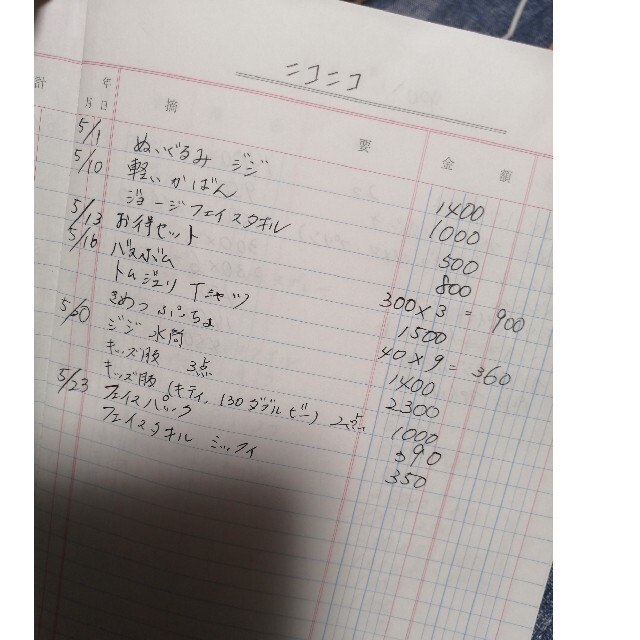 ニコニコ
計 年 月 日 摘 要 金 額
5/1 ぬいぐるみ ジジ 1400
5/10 軽いかばん 1000
ジョージフェイスタオル 500
5/13 お得セット 800
5/16 バスボム 300×3 = 900
トムジェリ Tシャツ 1500
きめつ ぷちょ 40×9 = 360
5/20 ジジ 水筒 1400
キッズ服 3点 2300
キッズ服 (キティ、130 ダブルビー) 2点 1000
5/23 フェイスパック 390
フェイスタオル ミッフィ 350